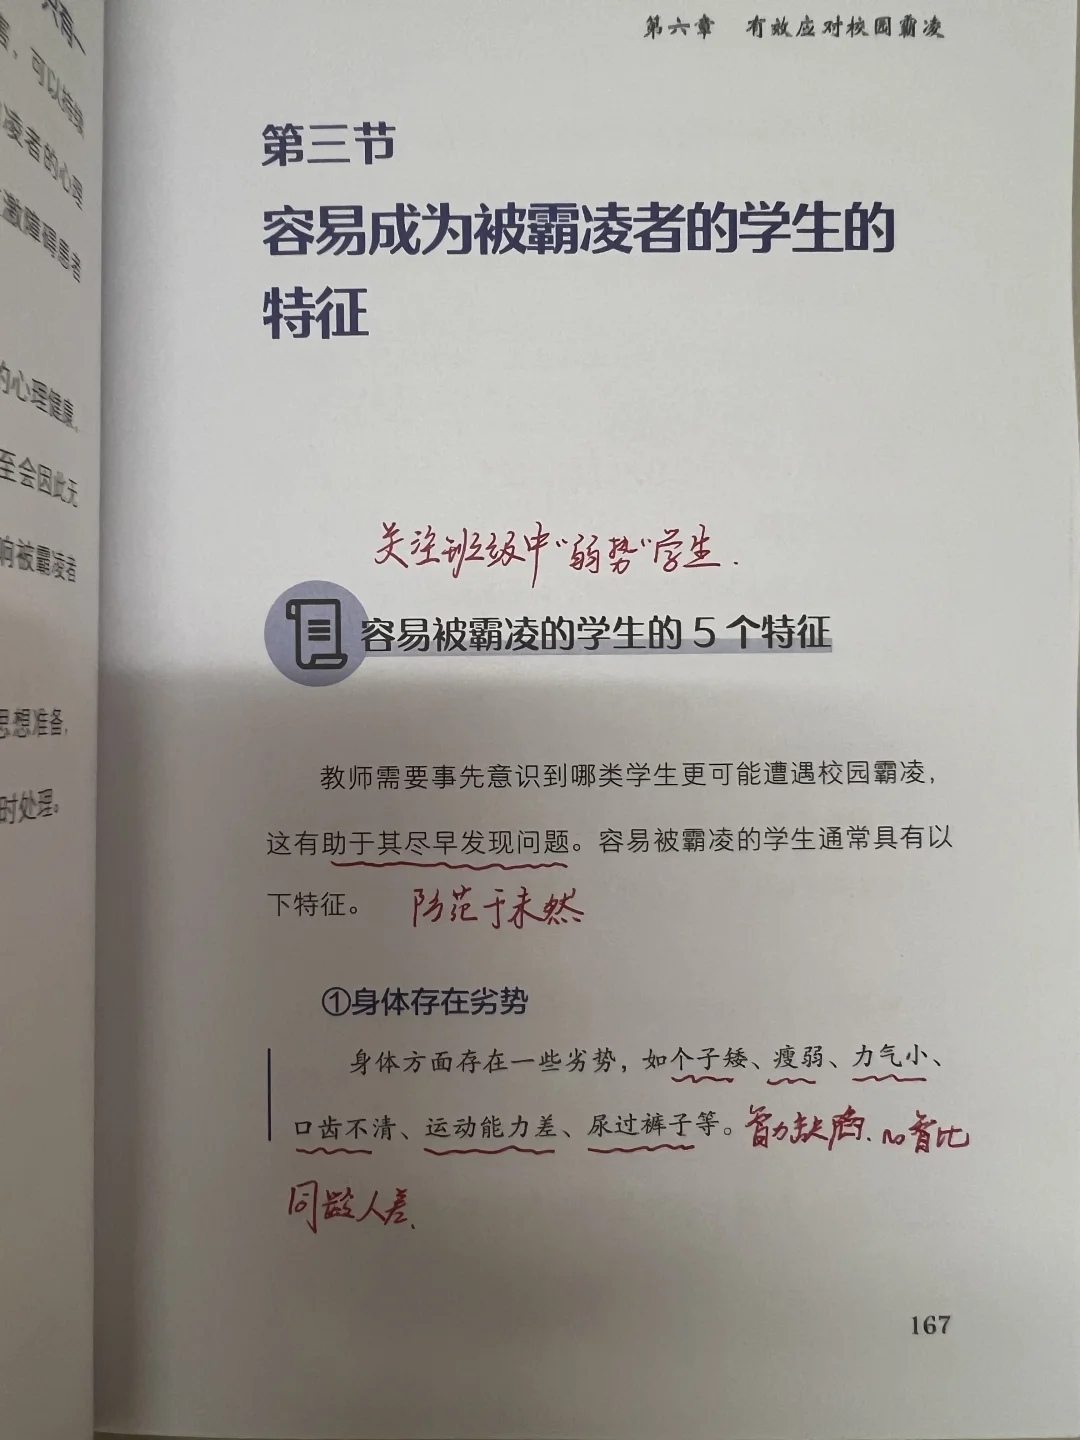 只有
害，可以持续
凌者的心理
激障碍患者
的心理健康，
至会因此无
响被霸凌者
思想准备，
时处理。
第六章 有效应对校园霸凌
第三节
容易成为被霸凌者的学生的
特征
关注班级中“弱势”学生.
容易被霸凌的学生的 5 个特征
教师需要事先意识到哪类学生更可能遭遇校园霸凌，
这有助于其尽早发现问题。容易被霸凌的学生通常具有以
下特征。 防范于未然
①身体存在劣势
身体方面存在一些劣势，如个子矮、瘦弱、力气小、
口齿不清、运动能力差、尿过裤子等。智力缺陷、心智比
同龄人差.
167